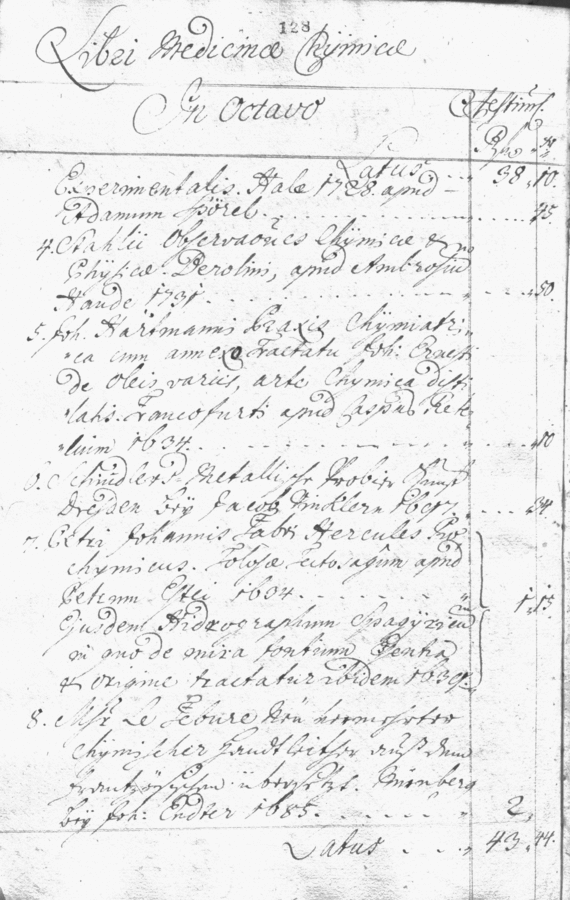 128
Libri Medicinæ Chÿmicæ
In Octavo
Latus . . . 38 „ 10.
Experimentalis. Halæ 1728. apud
Adamum Spörel. . . . . . 45.
4. Stahlii Observaões Chÿmicæ &
Phÿsicæ. Berolini, apud Ambrosiũ
Haude 1731. . . . . . 50
5. Joh. Hartmanni Praxis Chÿmiatri„
„ca cum annexo Tractatu Joh: Ernesti
de Oleis variis, arte Chymica disti
„latis. Francofurti apud
1634. . . . . . 10
6. Schindlers Metallische Probier Kunst
Dreßden beÿ Jacob Winklern 1697. . . . 34.
7. Petri Johannis Fabri Hercules Pio
chymicus. Tolosæ Tectosagum apud
Petrum 1634. . . . . 1 „ 15
Ejusdem Hidrographum Spagÿricũ
in quo de mira fontium Eentia
& origine tractatur ibidem 1639.
8. Msr Le Febure Neu vermehrter
Chÿmischer Handtleither auß dem
frantzösischen übersetzt. Nürnberg
beÿ Joh: Endter 1685. . . . . 2 „
Latus . . . . 43 „ 44.